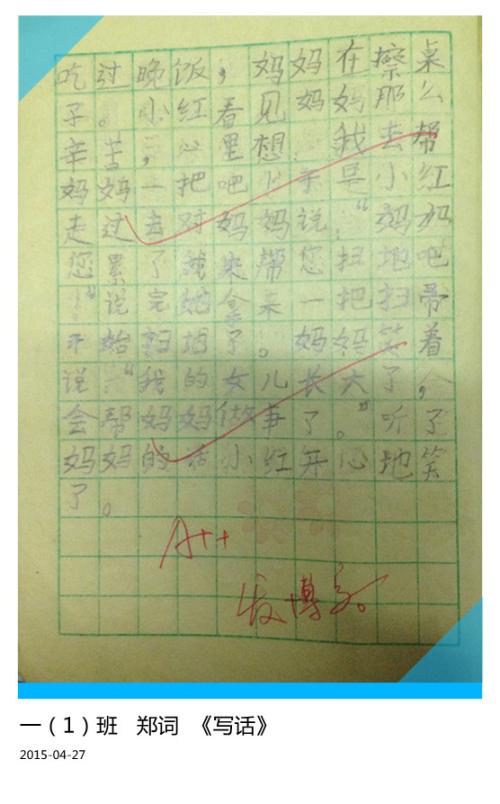 吃过晚饭，妈妈在擦桌
子。小红看见妈妈那么
辛苦，心里想：我去帮
妈妈一把吧！于是小红
走过去对妈妈说：“妈妈
您累了我来帮您扫地吧
！”说完她拿来一把扫帚
开始扫地了。妈妈笑着
说：“我的女儿长大了，
会帮妈妈做事了。”听了
妈妈的话小红开心地笑
了。
A++
一（1）班 郑词 《写话》
2015-04-27